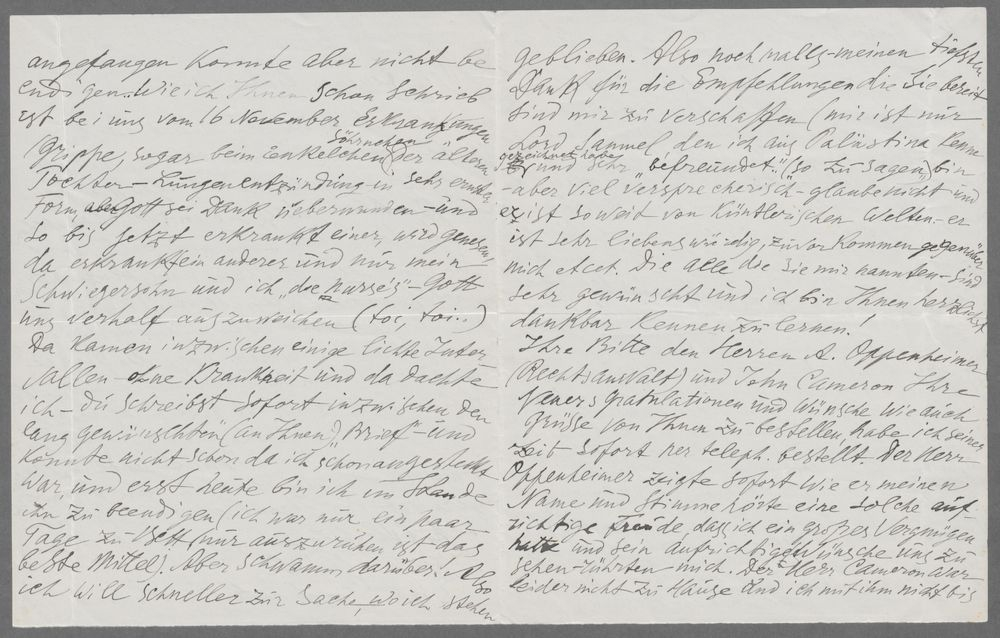 angefangen konnte aber nicht be
endigen. Wie ich Ihnen schon schrieb
ist bei uns vom 16 November erkrankungen
Söhnchen
(Grippe, sogar beim Enkelchen (der ältern
Tochter – Lungenentzündung in sehr ernster
Form, aber Gott sei Dank ueberwunden – und
so bis jetzt erkrankt einer, wird genesen,
da erkrankt ein anderer und nur mein
Schwiegersohn und ich „die nurses" – Gott
uns verhalf auszuweichen (toi, toi..)
Da kamen inzwischen einige lichte Inter
vallen – ohne Krankheit und da dachte
ich – du schreibst sofort inzwischen den
lang gewünschten (an Ihnen) „Brief" – und
konnte nicht schon da ich schon angesteckt
war, und erst heute bin ich im Stande
ihn zu beendigen (ich war nur ein paar
Tage zu Bett, nur auszuruhen ist das
beste Mittel). Aber schwamm darüber! Also
ich will schneller zur Sache, wo ich stehen
geblieben. Also nochmalls – meinen tiefsten
Dank für die Empfehlungen die Sie bereit
sind mir zu verschaffen (mir ist nur
Lord Samuel den ich aus Palästina kenne
gezeichnet habe
und sehr „befreundet" (so zu sagen) bin
– aber viel versprecherisch – glaube nicht und
er ist soweit von Künstlerischen Welten – er
ist sehr liebenswürdig, zuvorkommen gegenüber
mich etcet. Die alle die Sie mir nannten – sind
sehr gewünscht und ich bin Ihnen herzlichst
dankbar kennen zu lernen!
Ihre Bitte den Herren A. Oppenheimer
(Rechtsanwalt) und John Cameron Ihre
Gratulationen und Wünsche wie auch
Grüsse von Ihnen zu bestellen, habe ich seiner
zeit sofort per teleph. bestellt. Der Herr
Oppenheimer zeigte sofort wie er meinen
Name und Stimme hörte eine solche auf-
richtige freude, das ich ein großes Vergnügen
hatte und sein aufrichtige Wünsche uns zu
sehen – rührten mich. Der Herr Cameron war
leider nicht zu Hause und ich mit ihm nicht bis